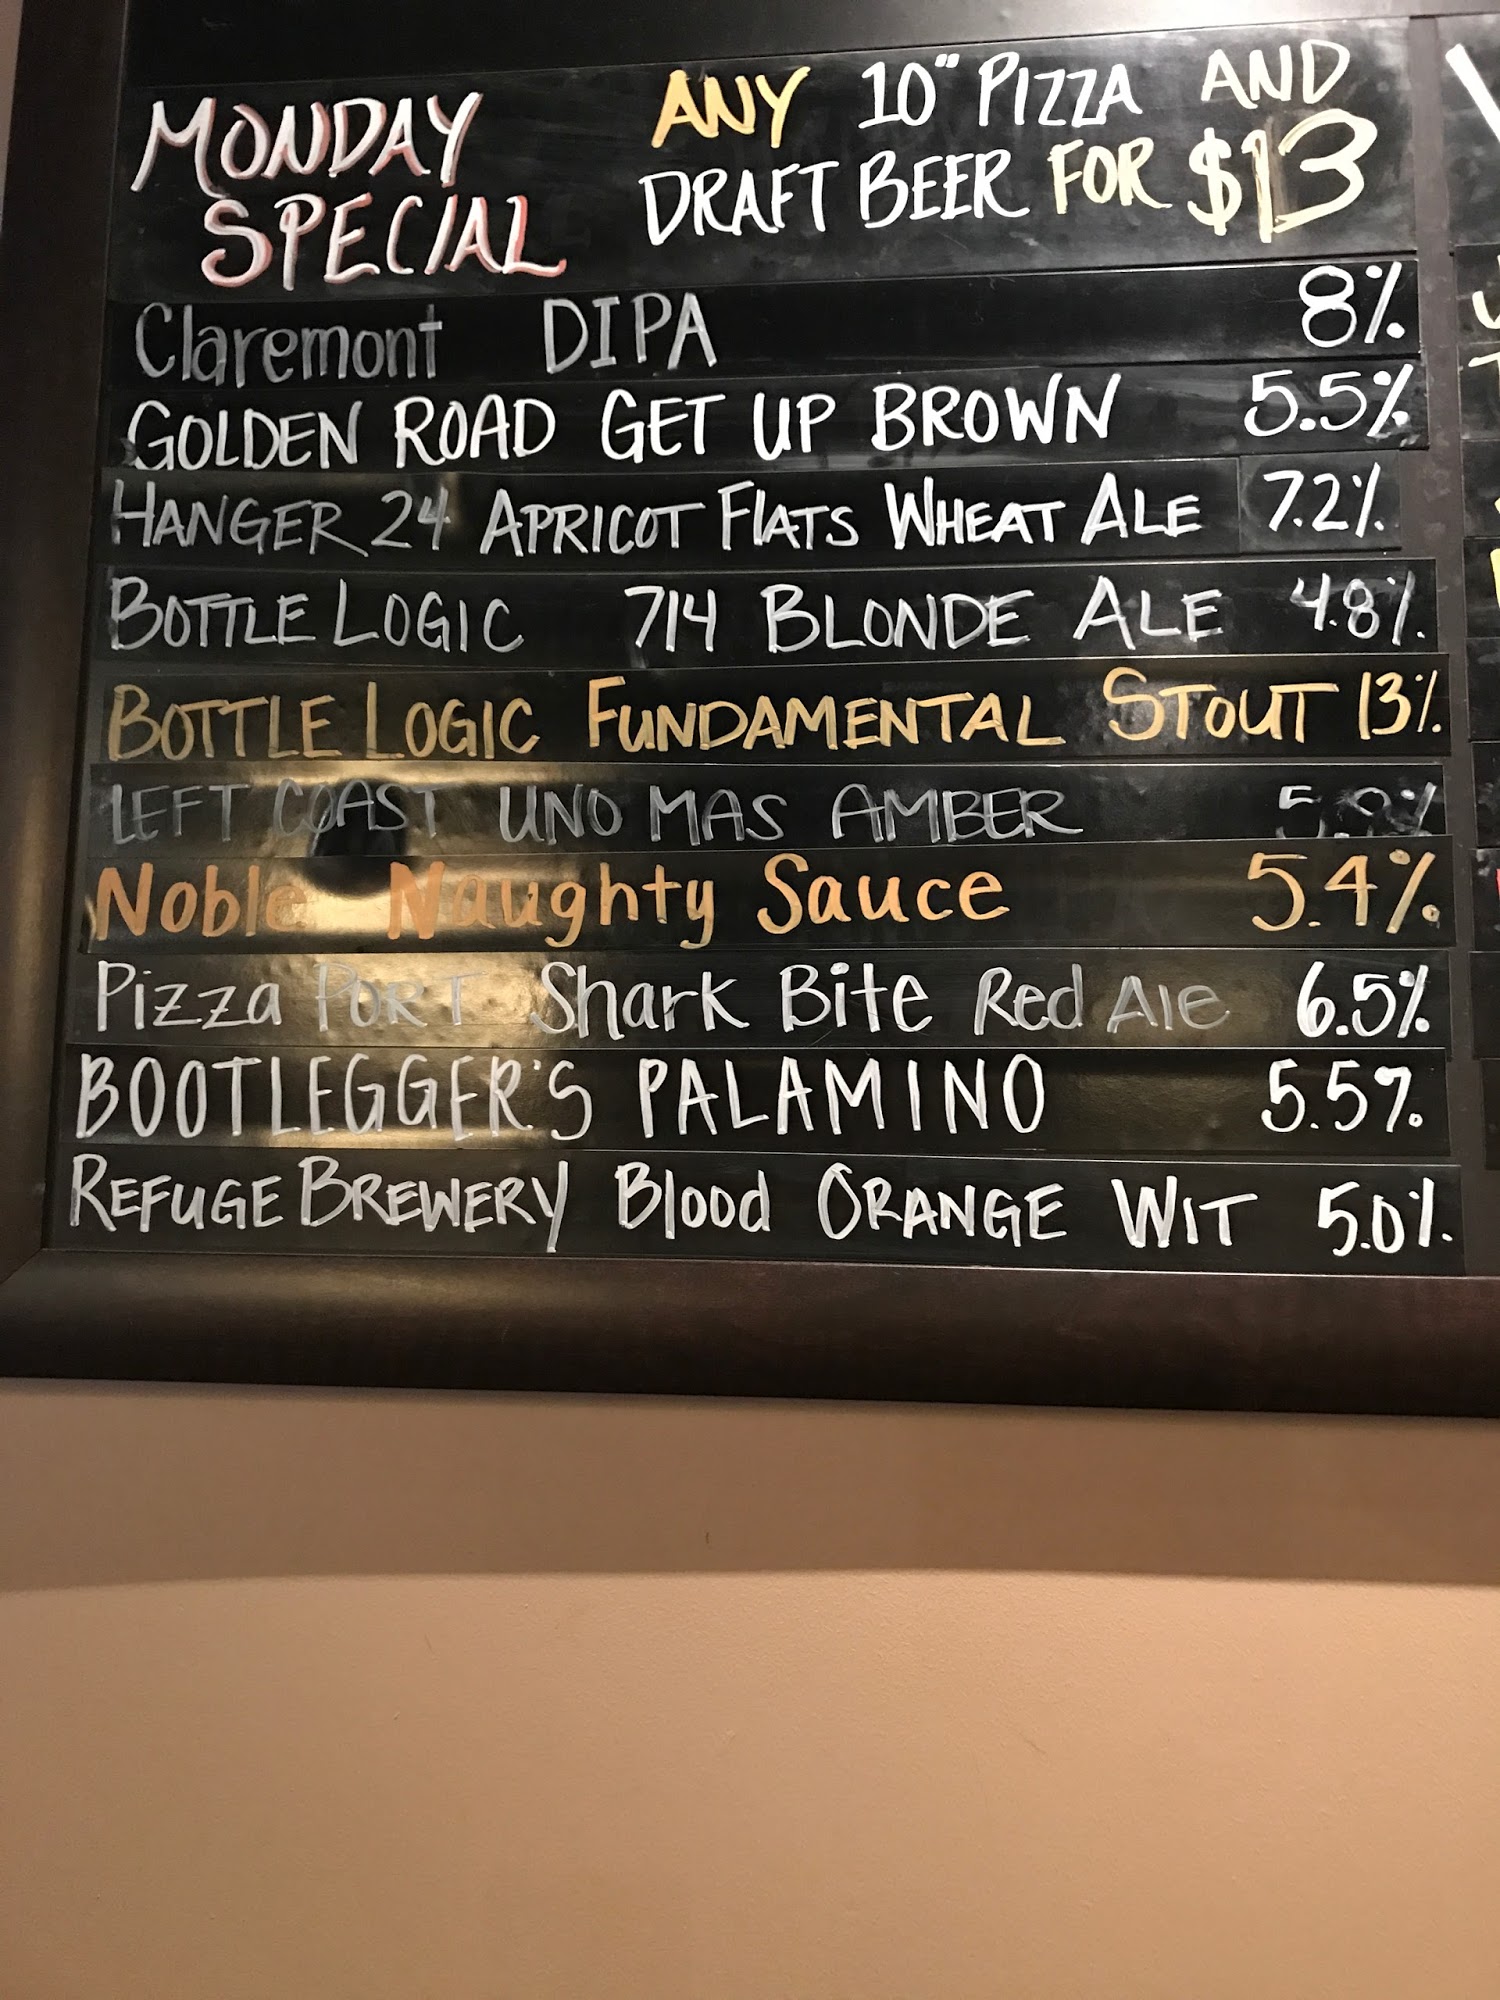 MONDAY SPECIAL
ANY 10" PIZZA AND
DRAFT BEER FOR $13
Claremont DIPA 8%
GOLDEN ROAD GET UP BROWN 5.5%
HANGER 24 APRICOT FLATS WHEAT ALE 7.2%
BOTTLE LOGIC 714 BLONDE ALE 4.8%
BOTTLE LOGIC FUNDAMENTAL STOUT 13%
LEFT COAST UNO MAS AMBER
Noble Naughty Sauce 5.4%
Pizza PORT Shark Bite Red Ale 6.5%
BOOTLEGGER'S PALAMINO 5.5%
REFUGE BREWERY Blood ORANGE WIT 5.0%